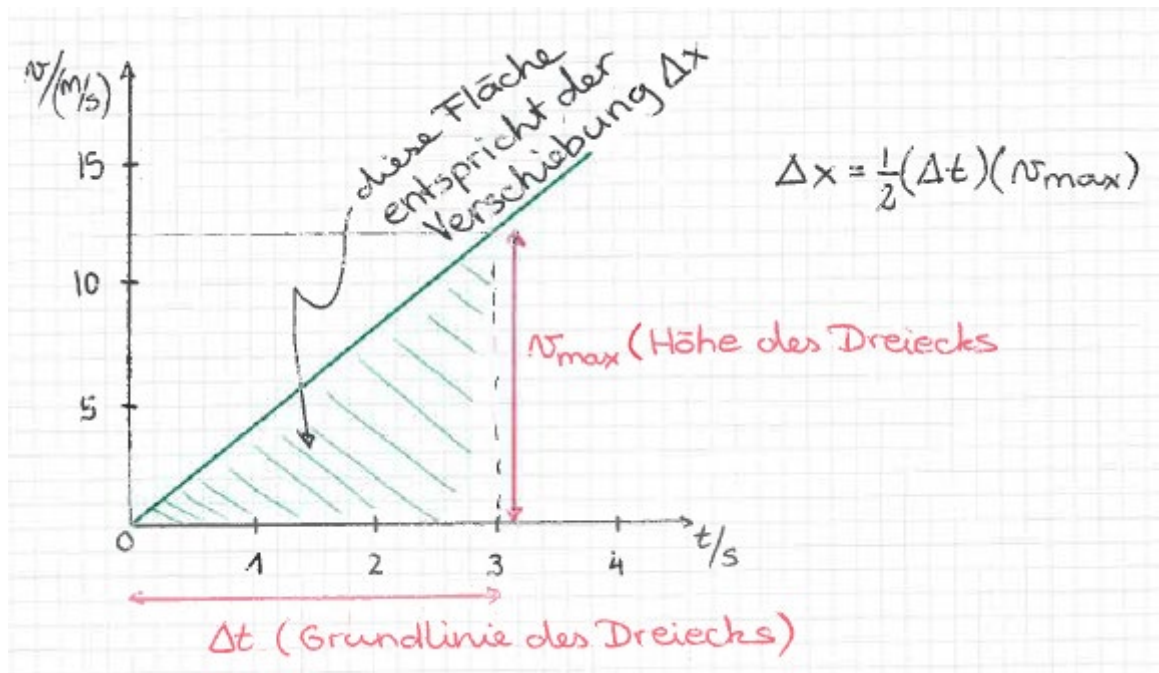 v/(m/s)
15
10
5
0
1
2
3
4
t/s
diese Fläche
entspricht der
Verschiebung Δx
Δx = ½(Δt)(vmax)
vmax (Höhe des Dreiecks
Δt (Grundlinie des Dreiecks)